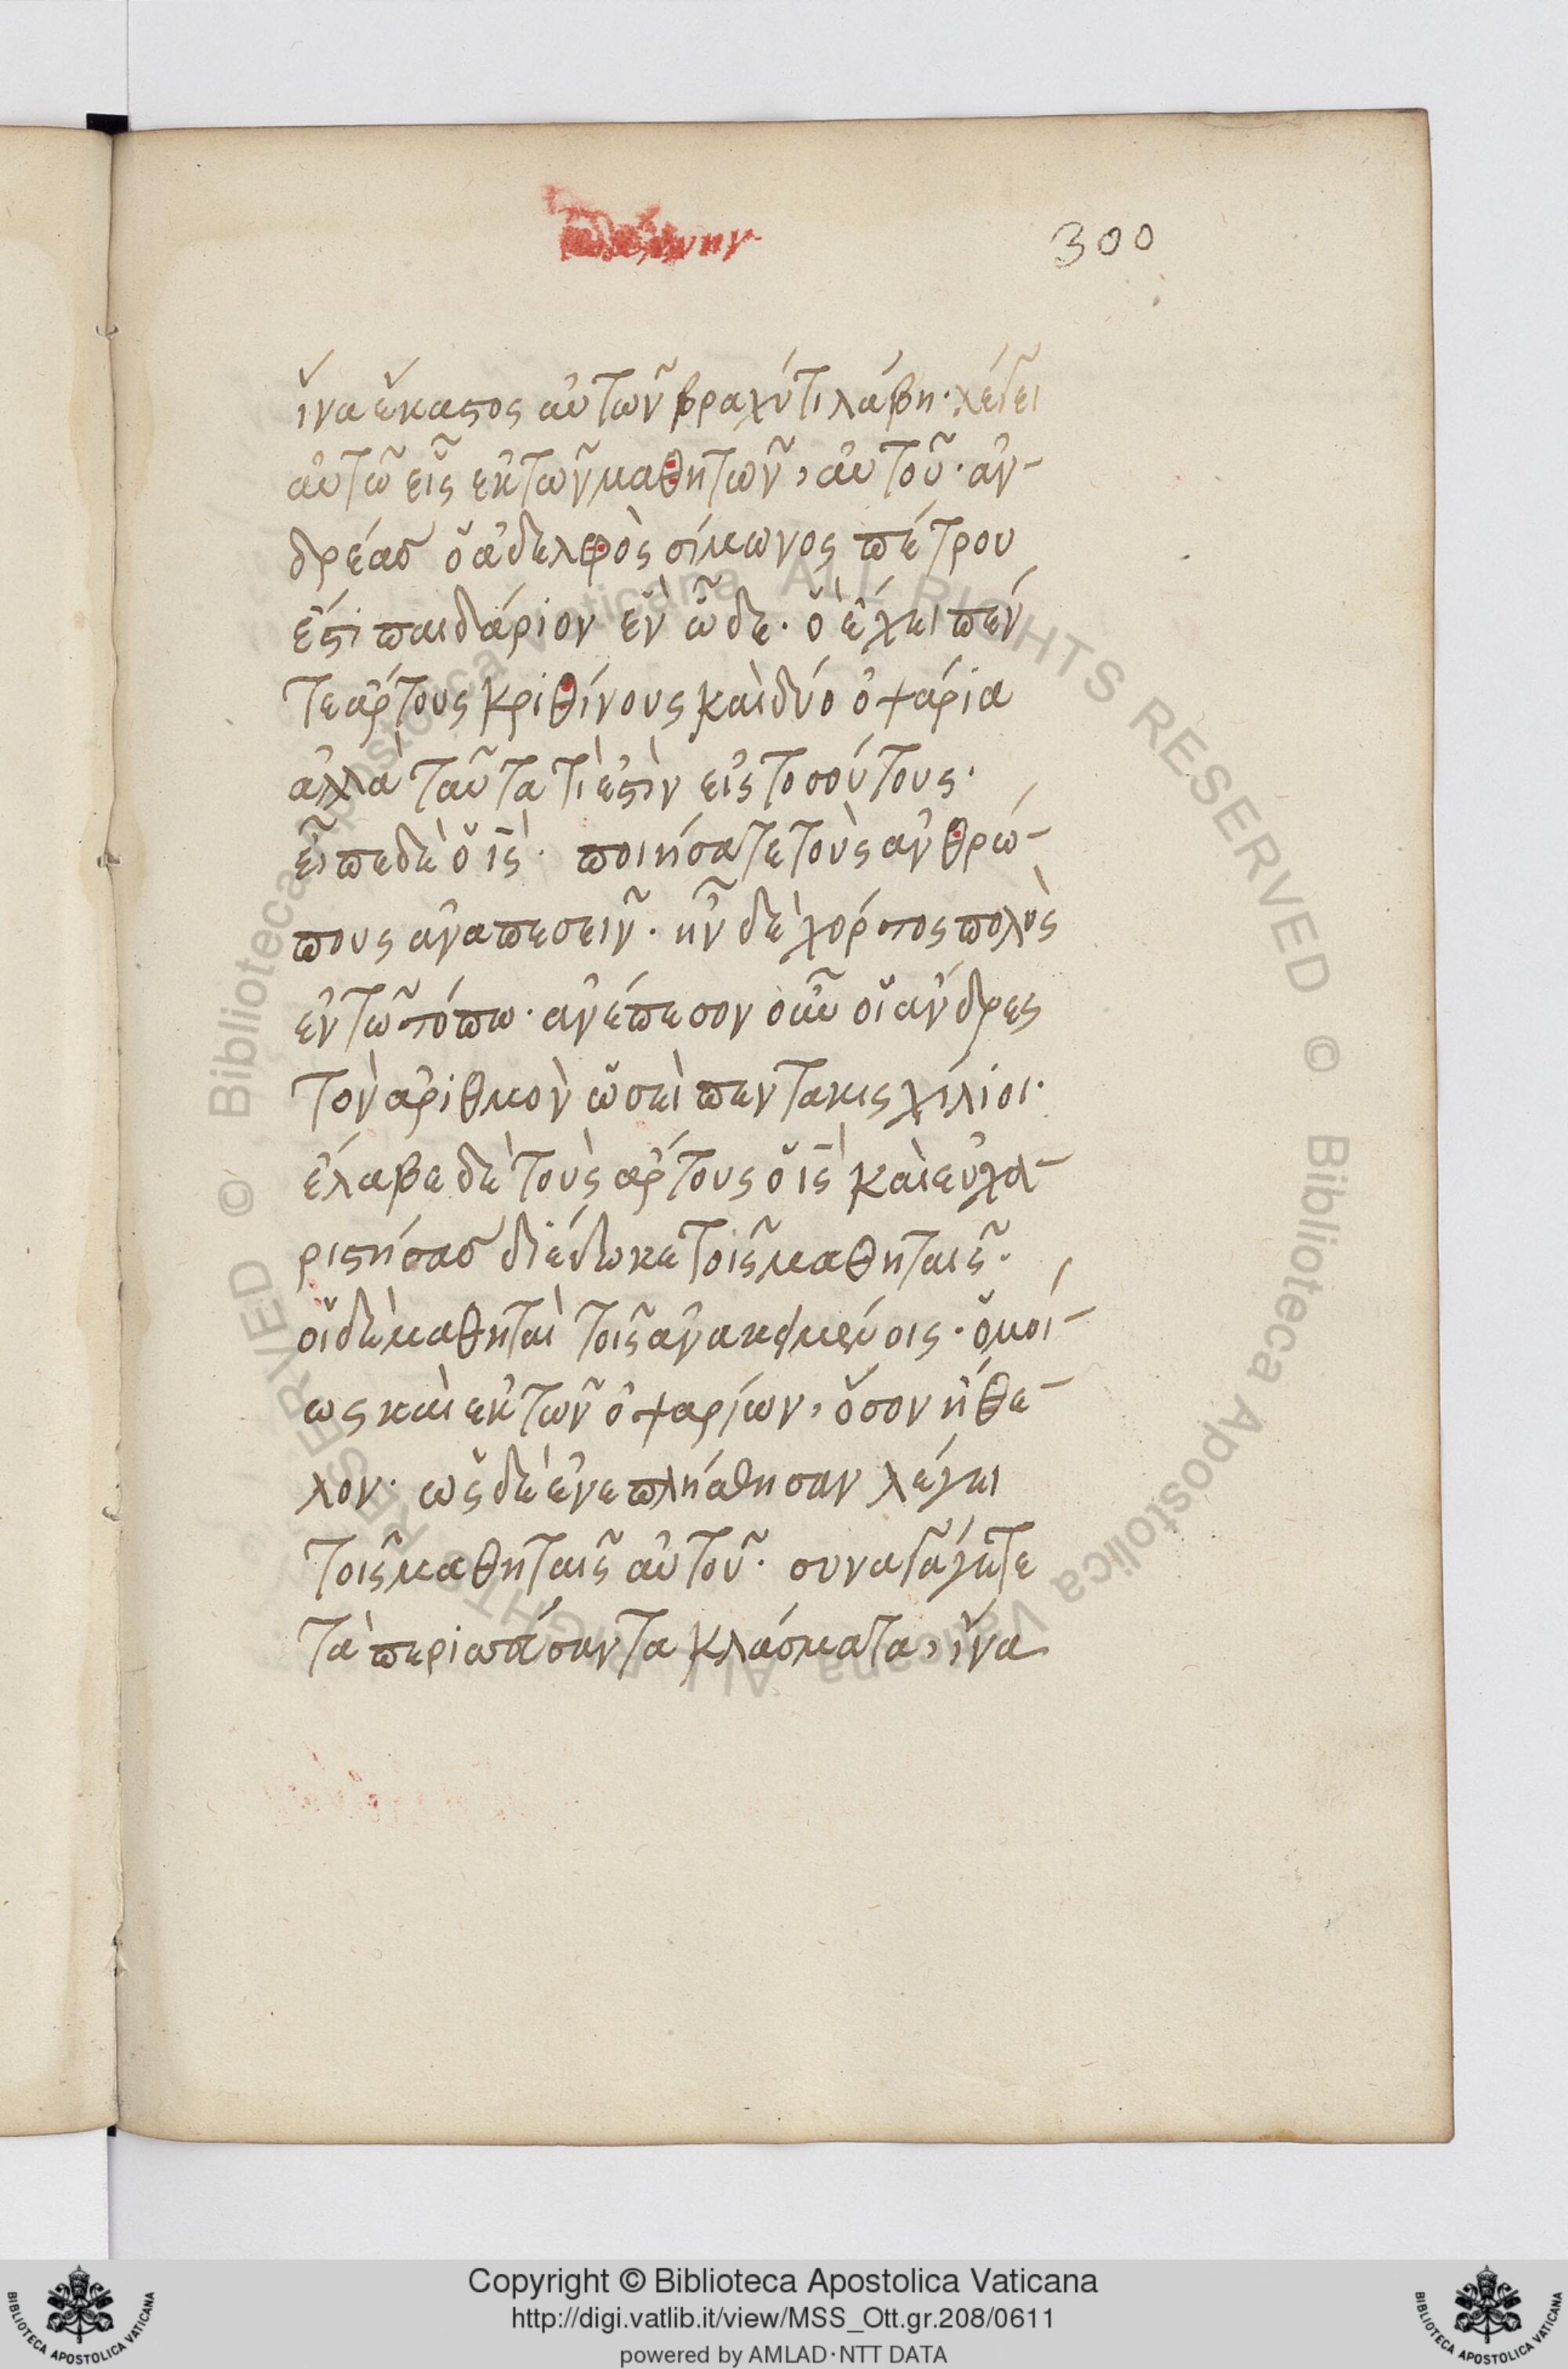 300
ἵνα ἕκαστος αὐτῶν βραχύ τι λάβη· λέγει
αὐτῶ εἷς ἐκ τῶν μαθητῶν, αὐτοῦ· ἀν-
δρέας ὁ ἀδελφὸς σίμωνος πέτρου
ἔστι παιδάριον ἓν ὧδε· ὃ ἔχει πέν
τε ἄρτους κριθίνους καὶ δύο ὀψάρια
ἀλλὰ ταῦτα τὶ ἐστὶν εἰς τοσούτους·
εἶπε δὲ ὁ ις· ποιήσατε τοὺς ἀνθρώ-
πους ἀναπεσεῖν· ἦν δὲ χόρτος πολὺς
ἐν τῶ τόπω· ἀνέπεσον οὖν οἱ ἄνδρες
τὸν ἀριθμὸν ὡσεὶ πεντακισχίλιοι·
ἔλαβε δὲ τοὺς ἄρτους ὁ ις καὶ εὐχα-
ριστήσας διέδωκε τοῖς μαθηταῖς·
οἱ δὲ μαθηταὶ τοῖς ἀνακειμένοις· ὁμοί-
ως καὶ ἐκ τῶν ὀψαρίων, ὅσον ἤθε-
λον· ὡς δὲ ἐνεπλήσθησαν λέγει
τοῖς μαθηταῖς αὐτοῦ· συναγάγετε
τὰ περισσεύσαντα κλάσματα, ἵνα
Copyright © Biblioteca Apostolica Vaticana
http://digi.vatlib.it/view/MSS_Ott.gr.208/0611
powered by AMLAD·NTT DATA